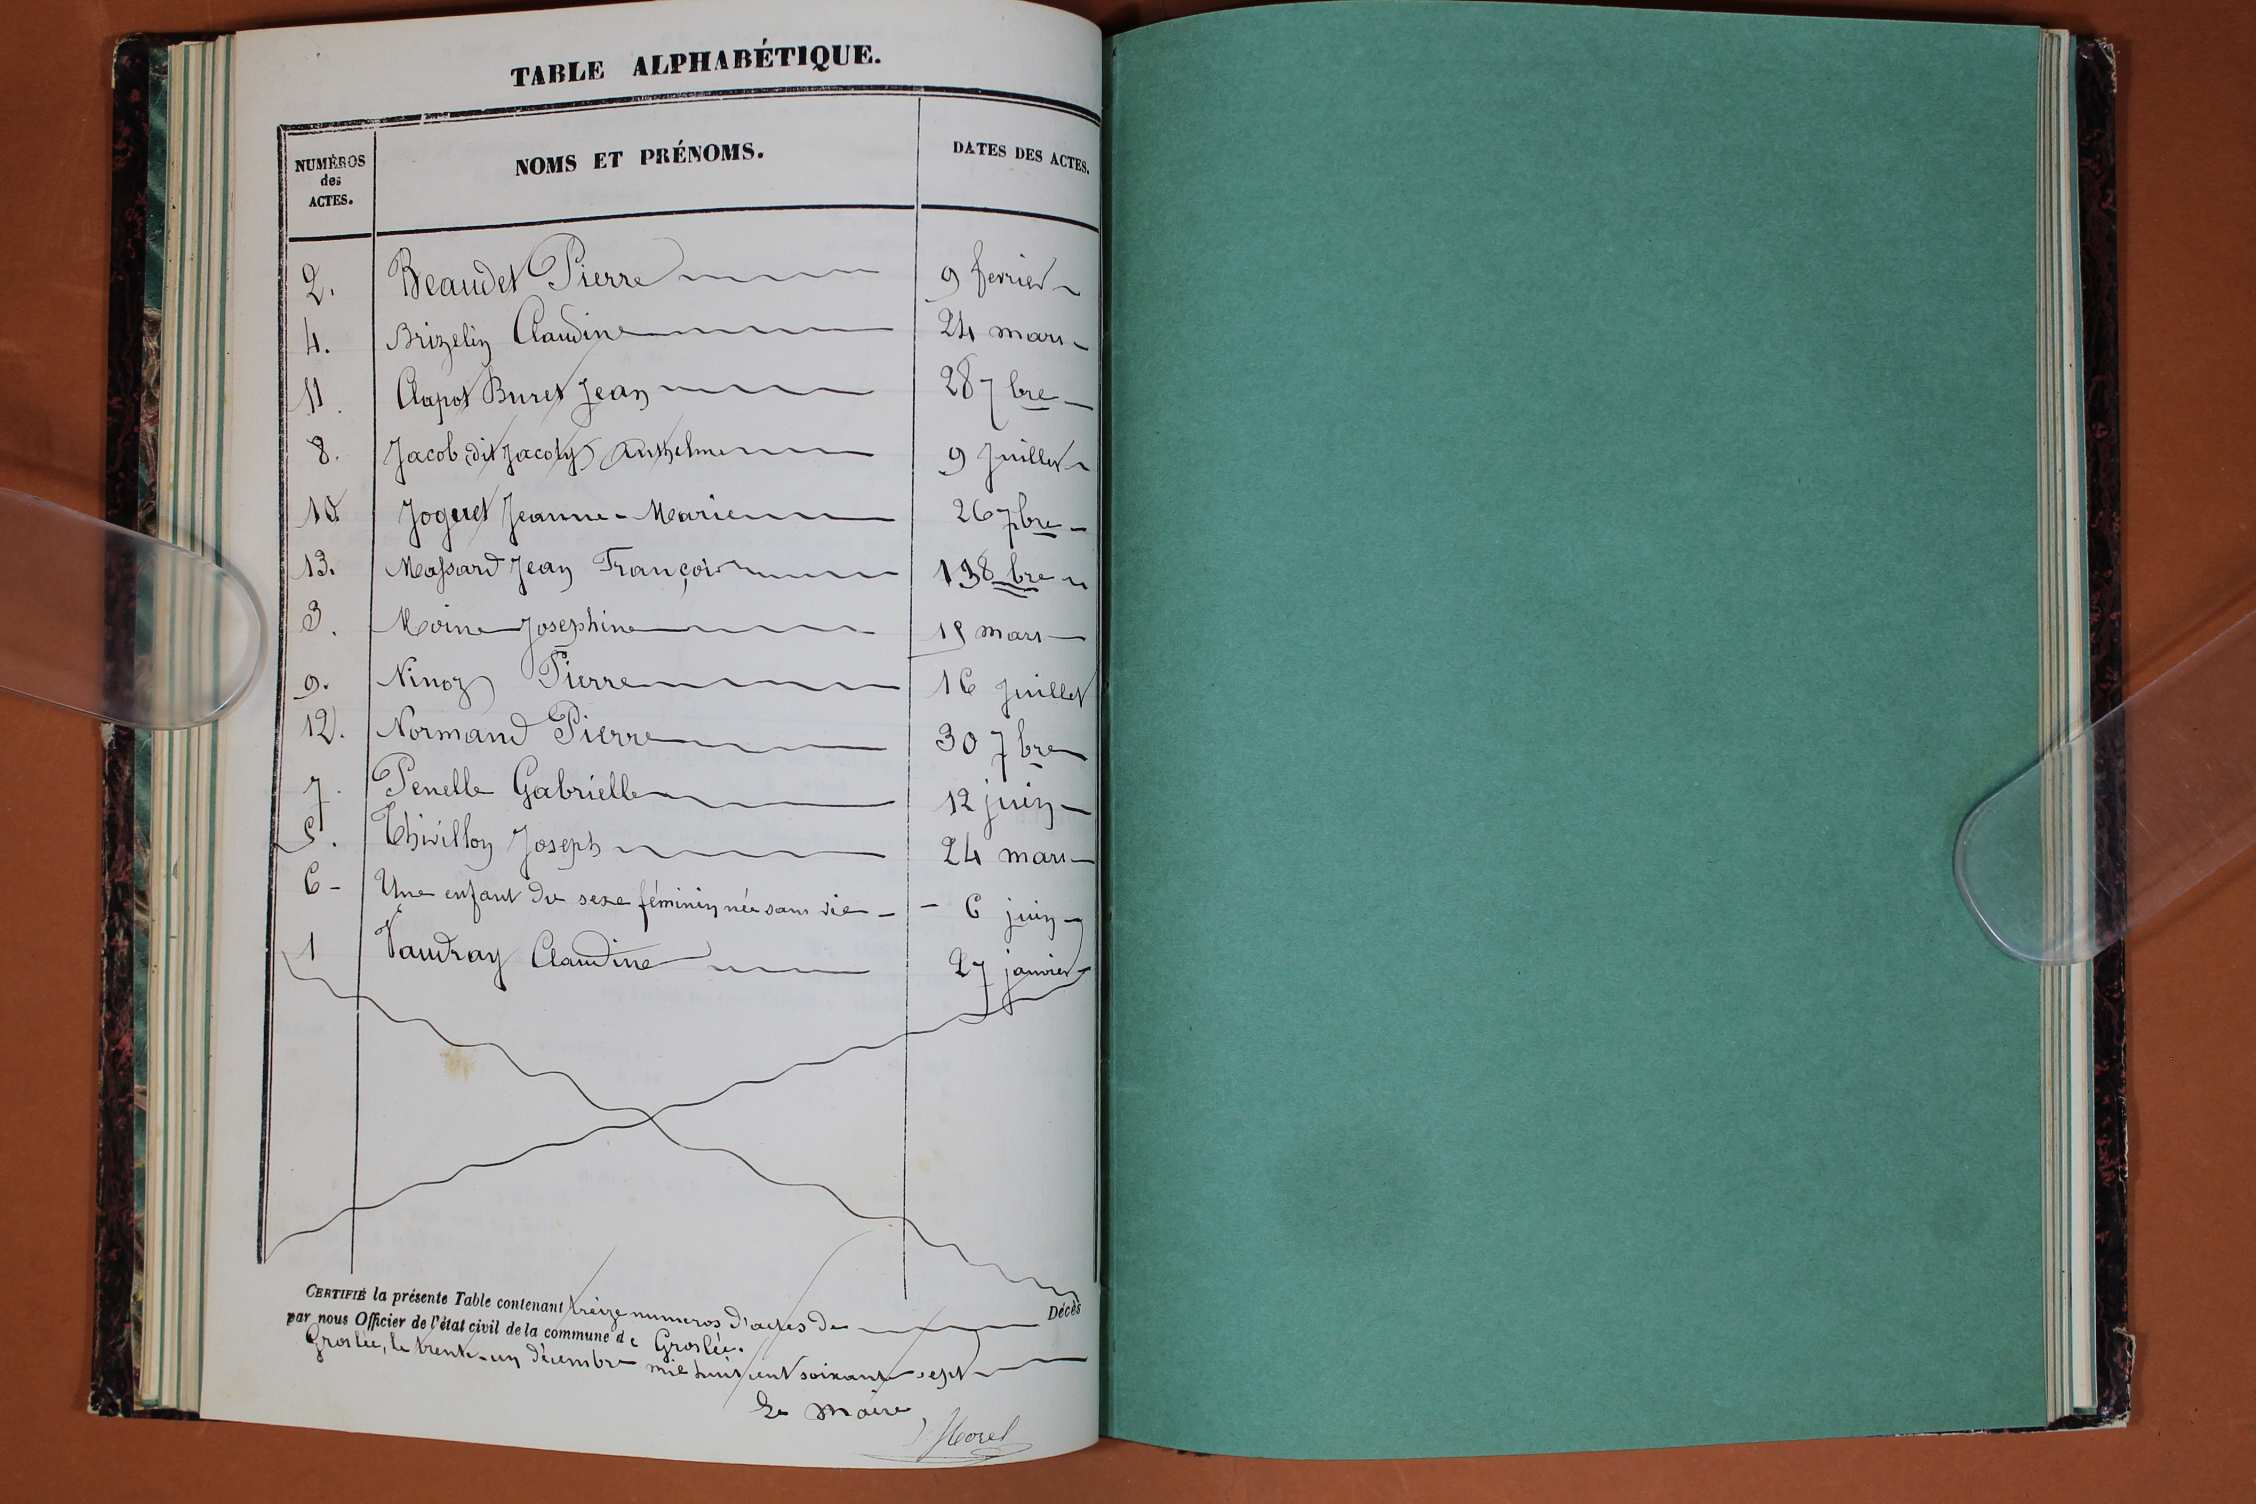 TABLE ALPHABÉTIQUE.
NUMÉROS des ACTES. NOMS ET PRÉNOMS. DATES DES ACTES.
2. Beaudet Pierre 9 fevrier
4. Brizelin Claudine 24 mars
11. Clapot Buret Jean 28 7bre
8. Jacob dit Jacoty Anthelme 9 Juillet
10 Joguet Jeanne-Marie 26 7bre
13. Massard Jean François 13 8bre
3. Moine Josephine 15 mars
9. Ninoz Pierre 16 Juillet
12. Normand Pierre 30 7bre
7. Penelle Gabrielle 12 juin
5. Thivillon Joseph 24 mars
6 - Une enfant du sexe féminin née sans vie - - 6 juin
1 Vaudray Claudine 27 janvier
CERTIFIÉ la présente Table contenant treize numeros d'actes de Décès
par nous Officier de l'état civil de la commune de Groslée.
Groslée, le trente-un décembre mil huit cent soixante sept
Le Maire